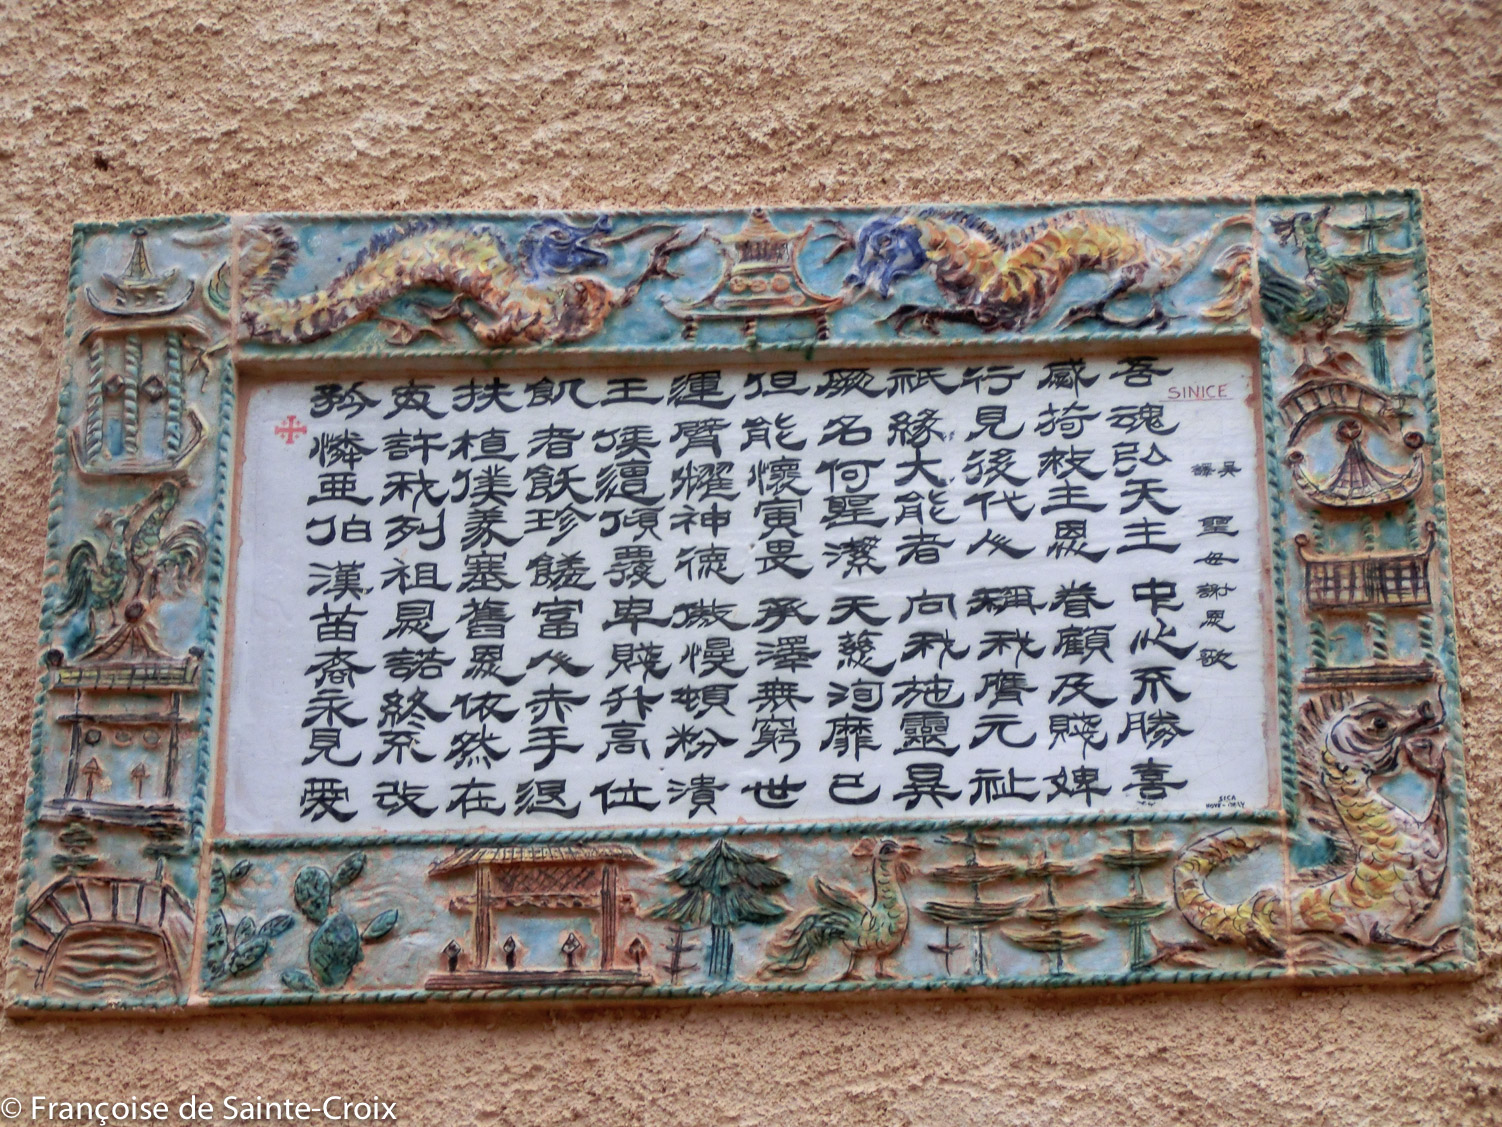 SINICE
吳譯 聖母謝恩歌
吾魂弘天主 中心不勝喜
感荷救主恩 眷顧及賤婢
行見後代人 稱我膺元祉
祇緣大能者 向我施靈異
厥名何聖潔 天慈洵靡已
但能懷寅畏 承澤無窮世
運臂耀神德 傲慢頓粉潰
王侯遭傾覆 卑賤升高位
飢者飫珍饈 富人赤手退
扶植僕義塞 舊恩依然在
爰許我列祖 恩諾終不改
矜憐亞伯漢 苗裔永見愛
SICA
© Françoise de Sainte-Croix